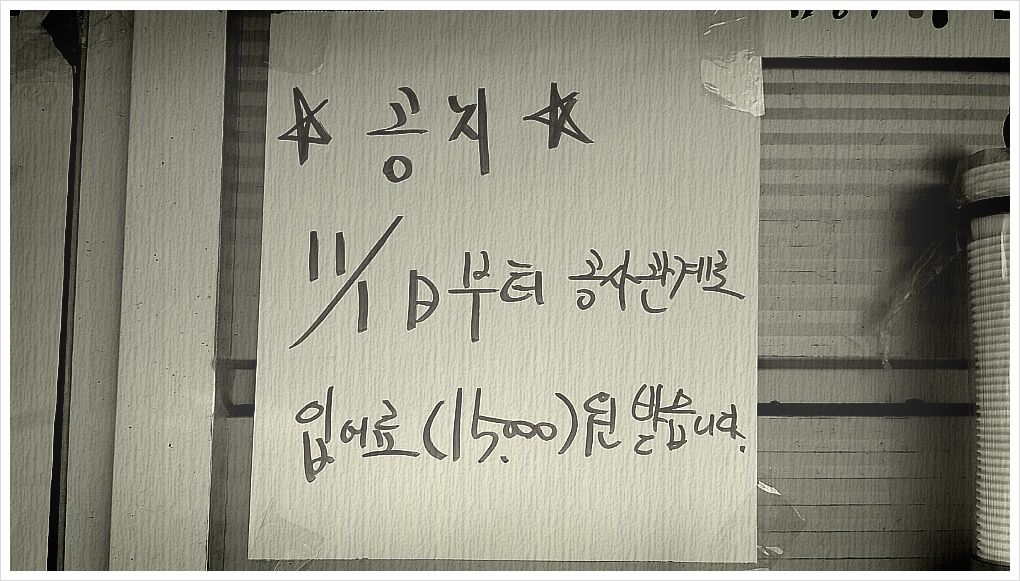 ☆ 공지 ☆
11/1日부터 공사관계로
입어료 (15,000)원 받습니다.